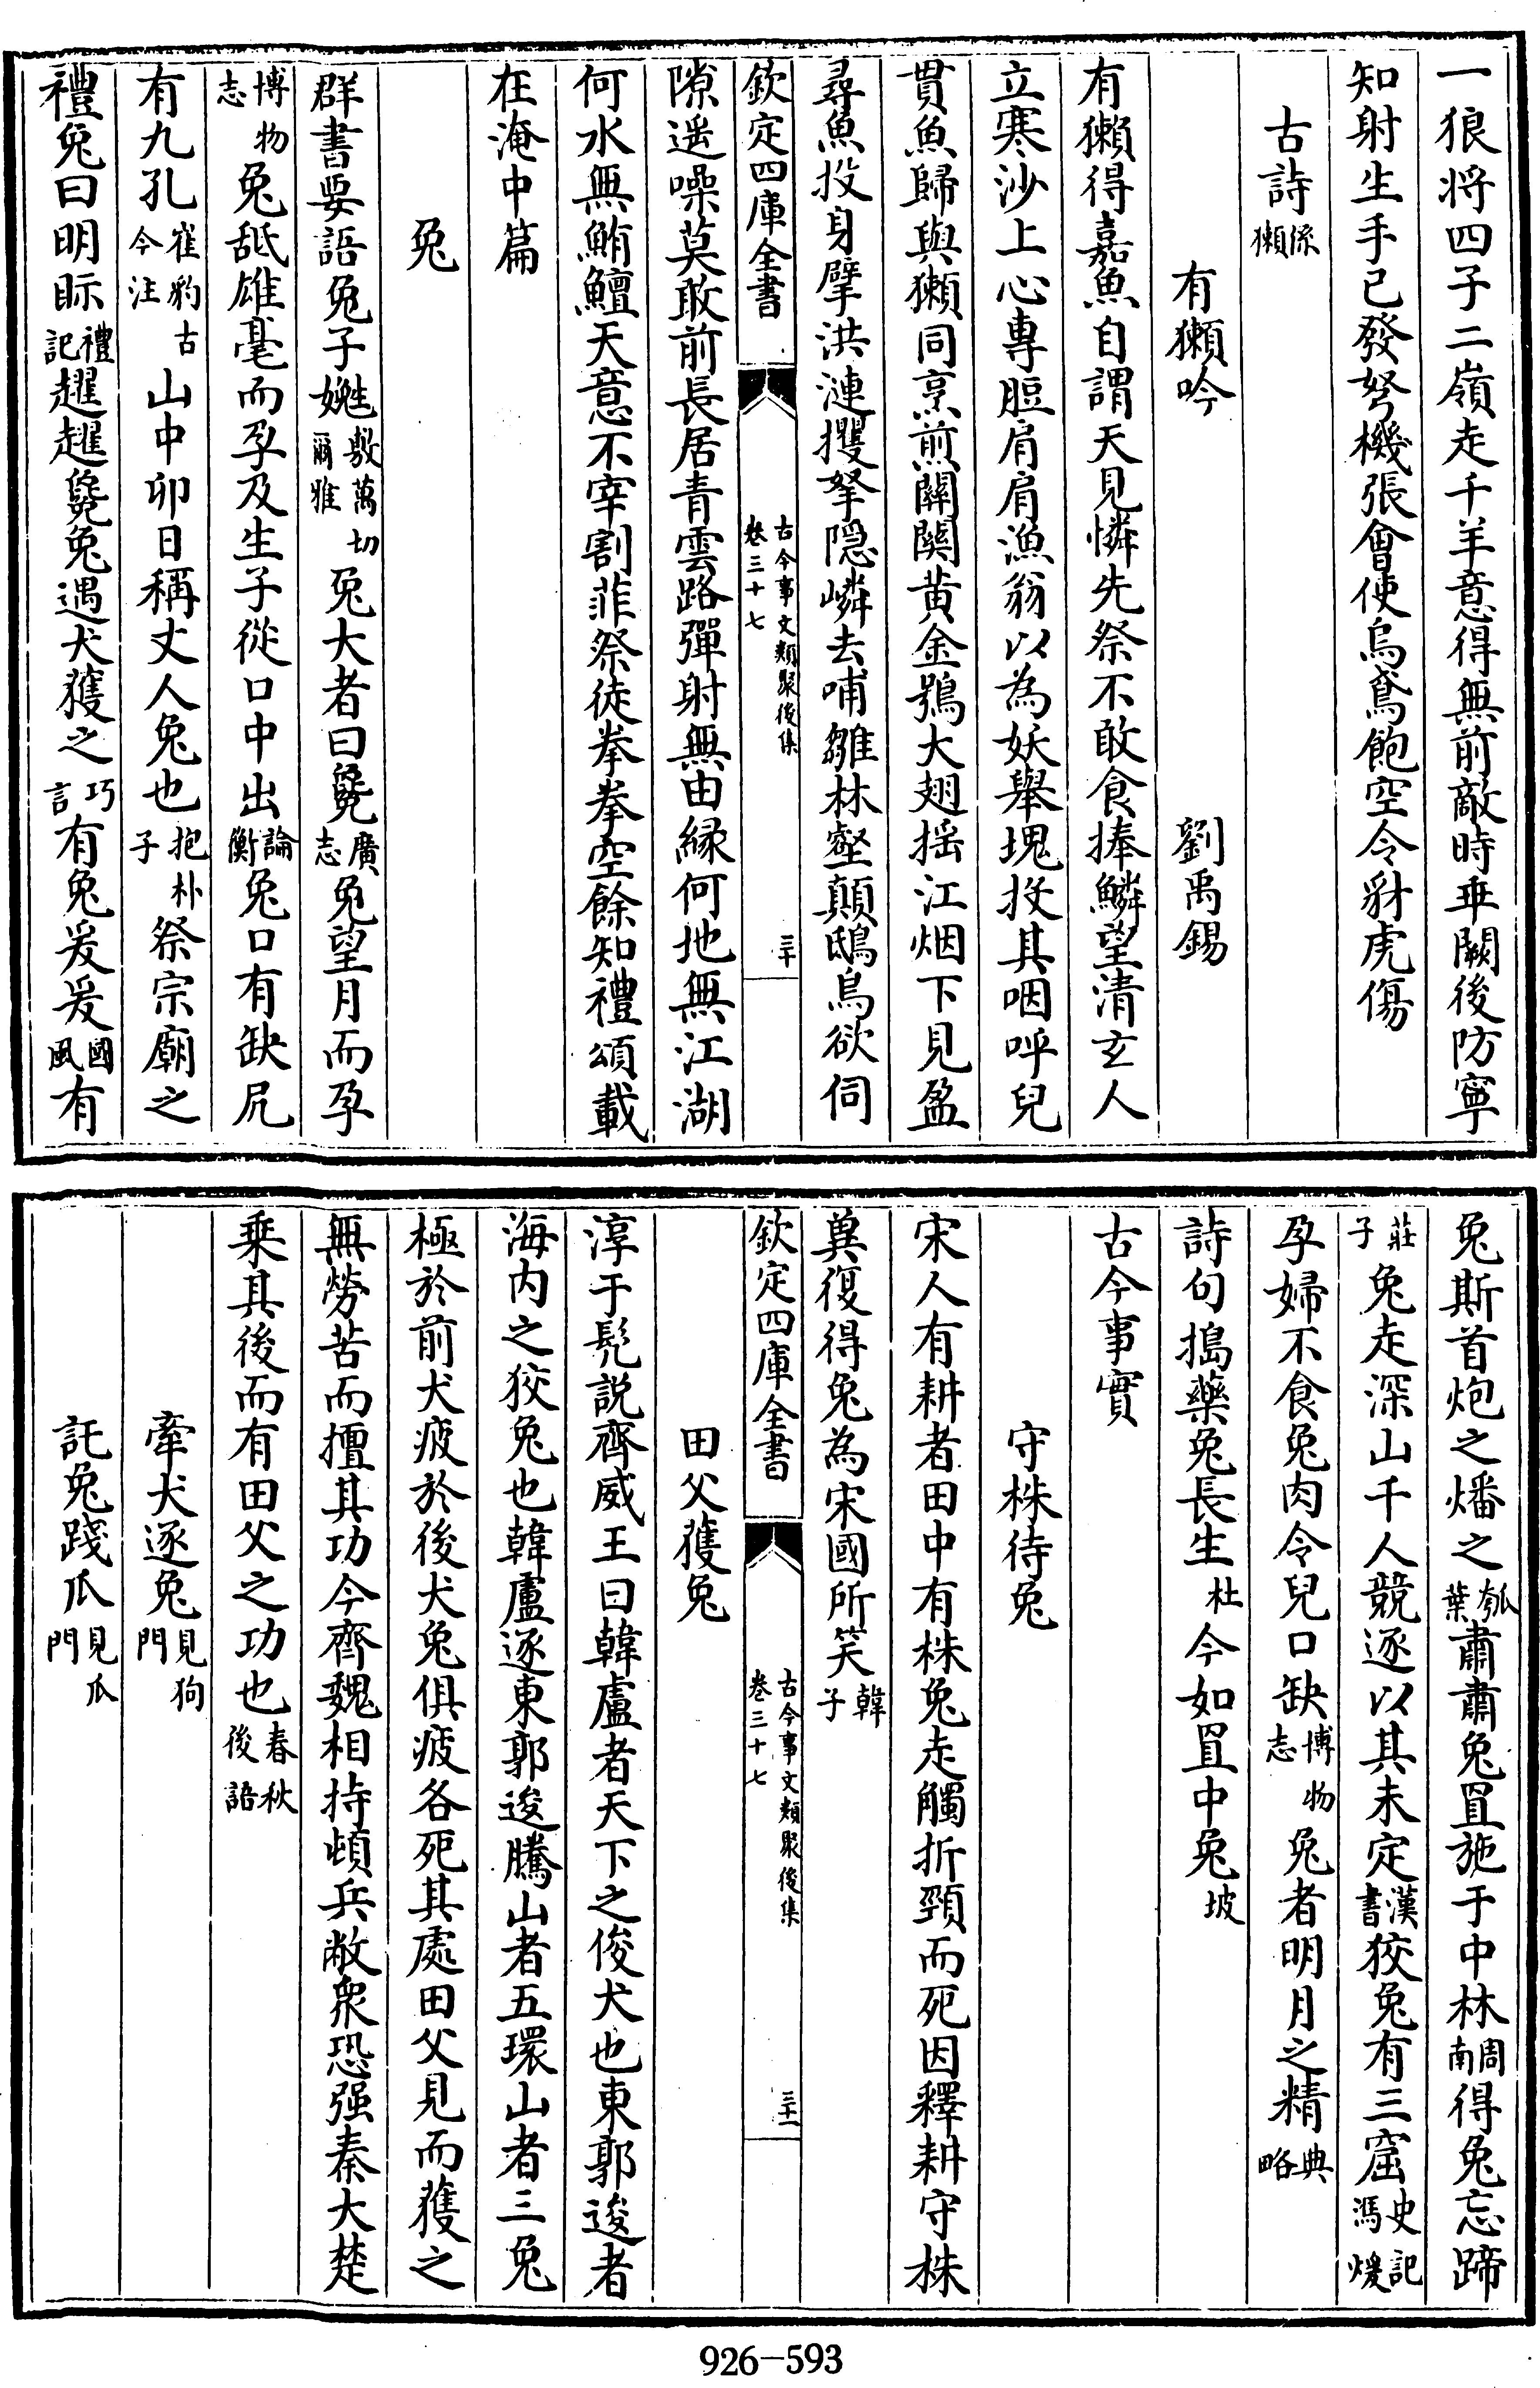 一狼将四子二嶺走千羊意得無前敵時乖闕後防寧
知射生手已發弩機張會使烏鳶飽空令豺虎傷
古詩係獺
有獺吟 劉禹錫
有獺得嘉魚自謂天見憐先祭不敢食捧鱗望清玄人
立寒沙上心專脰肩肩漁翁以為妖舉塊投其咽呼兒
貫魚歸與獺同烹煎闗闗黄金鶚大翅摇江烟下見盈
尋魚投身擘洪漣攫拏隠嶙去哺雛林壑顛鴟烏欲伺
欽定四庫全書 古今事文類聚後集卷三十七 三十
隙遥噪莫敢前長居青雲路彈射無由縁何地無江湖
何水無鮪鱣天意不宰割菲祭徒拳拳空餘知禮頌載
在淹中篇
兔
群書要語兔子嬎敷萬切爾雅兔大者曰㲋廣志兔望月而孕
博物志兔舐雄毫而孕及生子從口中出論衡兔口有缺尻
有九孔崔豹古今注山中卯日稱丈人兔也抱朴子祭宗廟之
禮兔曰明眎禮記趯趯毚兔遇犬獲之巧言有兔爰爰國風有
兔斯首炮之燔之瓠葉肅肅兔罝施于中林周南得兔忘蹄
莊子兔走深山千人競逐以其未定漢書狡兔有三窟史記馮煖
孕婦不食兔肉令兒口缺博物志兔者明月之精典略
詩句搗藥兔長生杜今如罝中兔坡
古今事實
守株待兔
宋人有耕者田中有株兔走觸折頸而死因釋耕守株
冀復得兔為宋國所笑韓子
欽定四庫全書 古今事文類聚後集卷三十七 三十一
田父獲兔
淳于髡説齊威王曰韓盧者天下之俊犬也東郭逡者
海内之狡兔也韓盧逐東郭逡騰山者五環山者三兔
極於前犬疲於後犬兔俱疲各死其處田父見而獲之
無勞苦而擅其功今齊魏相持頓兵敝衆恐强秦大楚
乗其後而有田父之功也春秋後語
牽犬逐兔見狗門
託兔踐瓜見瓜門
926-593